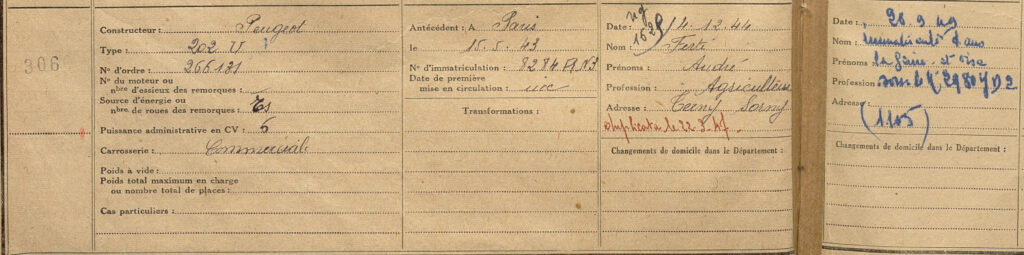 306
Constructeur : Peugeot
Type : 202 U
N° d'ordre : 266131
N° du moteur ou
nbre d'essieux des remorques :
Source d'énergie ou
nbre de roues des remorques : Es
Puissance administrative en CV : 6
Carrosserie : Commerciale
Poids à vide :
Poids total maximum en charge
ou nombre total de places :
Cas particuliers :
Antécédent : A Paris
le 15.5.43
N° d'immatriculation : 8284
Date de première
mise en circulation :
Transformations :
Date : 14.12.44
Nom : Ferté
Prénoms : André
Profession : Agriculteur
Adresse : Cerny Sorny
duplicata le 22.3.47.
Changements de domicile dans le Département :
Date : 28.9.49
Nom : immatriculé dans
Prénoms la Seine et Oise
Profession sous le N°
Adresse :
(1105)
Changements de domicile dans le Département :